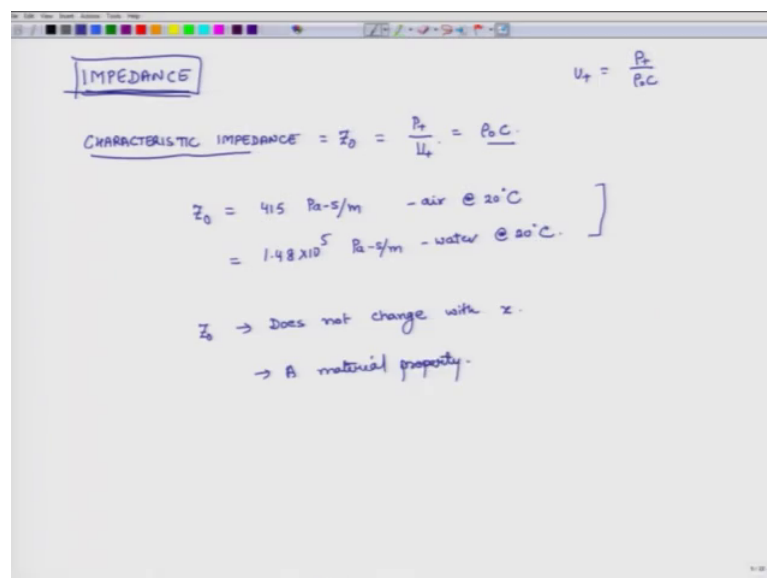 File Edit View Insert Actions Tools Help
IMPEDANCE
U₊ = P₊ / ρ₀C
CHARACTERISTIC IMPEDANCE = Z₀ = P₊ / U₊ = ρ₀C.
Z₀ = 415 Pa-s/m - air @ 20°C
= 1.48×10⁵ Pa-s/m - water @ 20°C.
Z₀ → Does not change with x.
→ A material property.